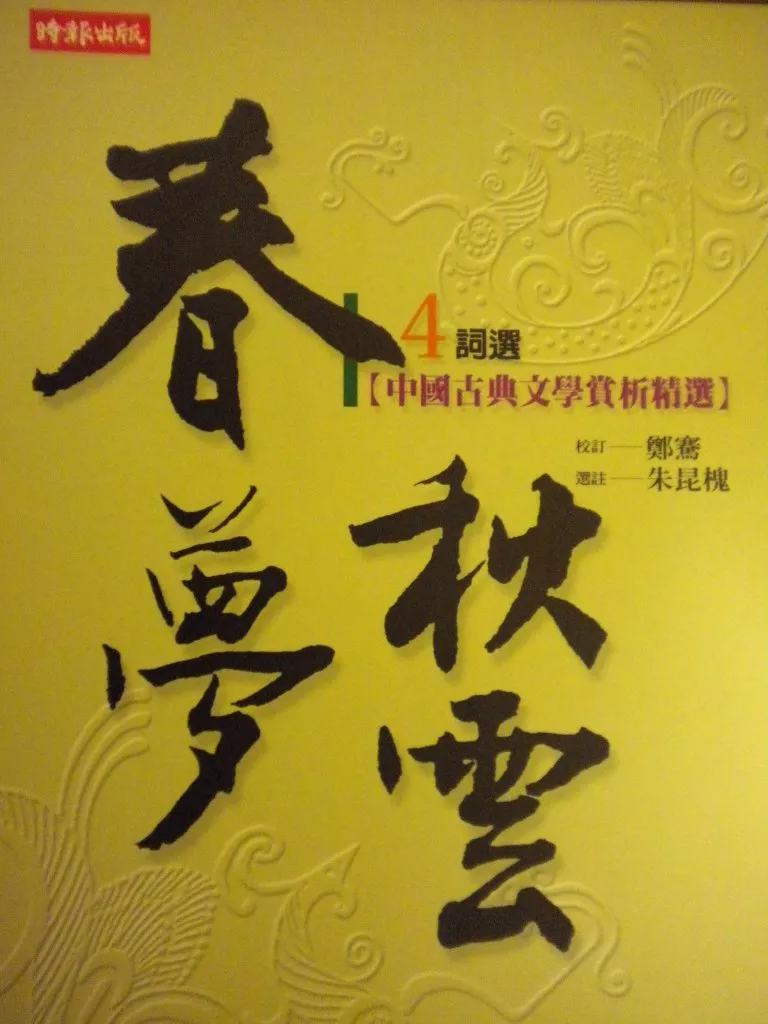 時報出版
春夢
秋雲
4 詞選
【中國古典文學賞析精選】
校訂——鄭騫
選註——朱昆槐